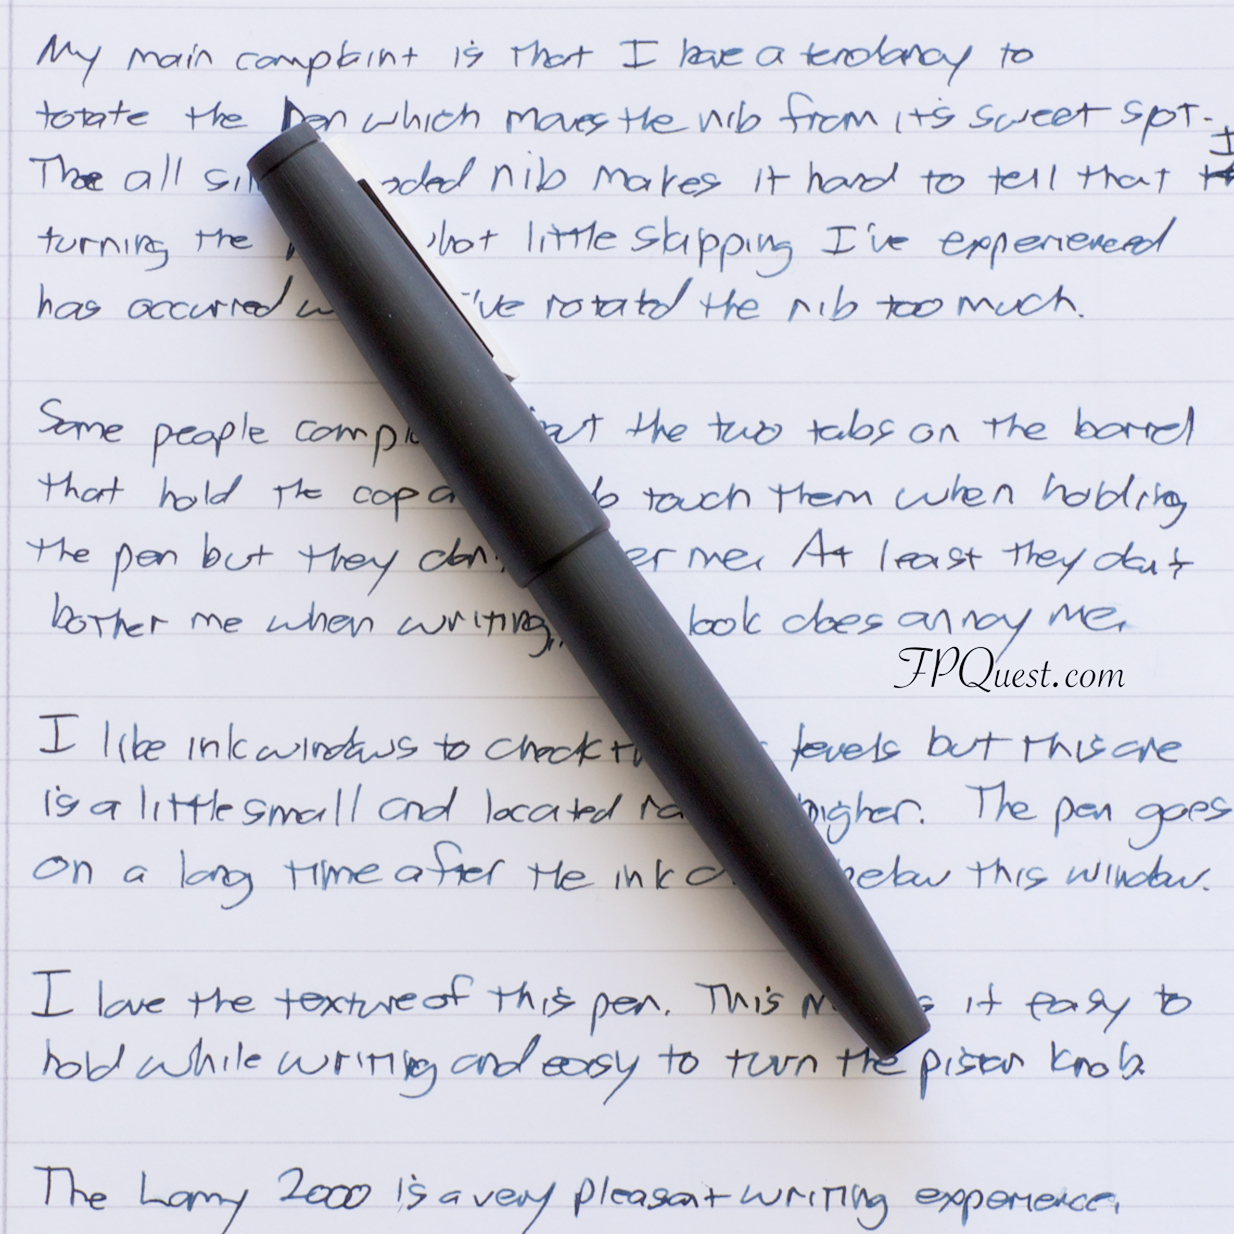 My main complaint is that I have a tendancy to
rotate the pen which moves the nib from it's sweet spot.
The all nib makes it hard to tell that I
turning the little skipping I've experienced
has occurred I've rotated the nib too much.
Some people the two tabs on the barrel
that hold the cap touch them when holding
the pen but they me. At least they don't
bother me when writing, look does annoy me.
FPQuest.com
I like ink windows to check levels but this one
is a little small and located higher. The pen goes
on a long time after the ink below this window.
I love the texture of this pen. This it easy to
hold while writing and easy to turn the piston knob.
The Lamy 2000 is a very pleasant writing experience.